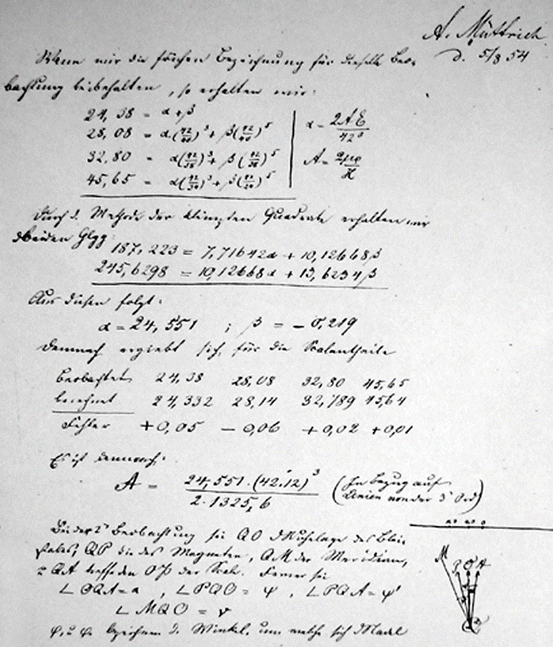 A. Müttrich
d. 5/8 54
Wenn wir die frühere Bezeichnung für dieselbe Beo-
bachtung beibehalten, so erhalten wir:
24,38 = α + β
28,08 = α(42/40)³ + β(42/40)⁵
32,80 = α(42/38)³ + β(42/38)⁵
45,65 = α(42/34)³ + β(42/34)⁵
α = 2AE/42³
A = 2μρ/H
Durch d. Methode der kleinsten Quadrate erhalten wir
d beiden Glgg:
187,223 = 7,71642α + 10,12668β
245,6298 = 10,12668α + 13,6234β
Aus diesen folgt:
α = 24,551 ; β = − 0,219
Demnach ergiebt sich, für die Scalentheile
Beobachtet 24,38 28,08 32,80 45,65
berechnet 24,332 28,14 32,789 45,64
Fehler +0,05 − 0,06 + 0,02 + 0,01
Es ist demnach:
A = 24,551 · (42.12)³ / 2 · 1325,6 (In Bezug auf
von der 3ⁿ Ord)
Bei der 2ⁿ Beobachtung sei QO d Ruhelage des
QP die des Magneten, QM der Meridian,
QA der Scale. Ferner sei
∠ OQA = a, ∠ PQO = φ, ∠ PQA = φ'
∠ MQO = v
M P O A
Q
φ, u φ' bezeichnen d. Winkel, um welche sich Nadel